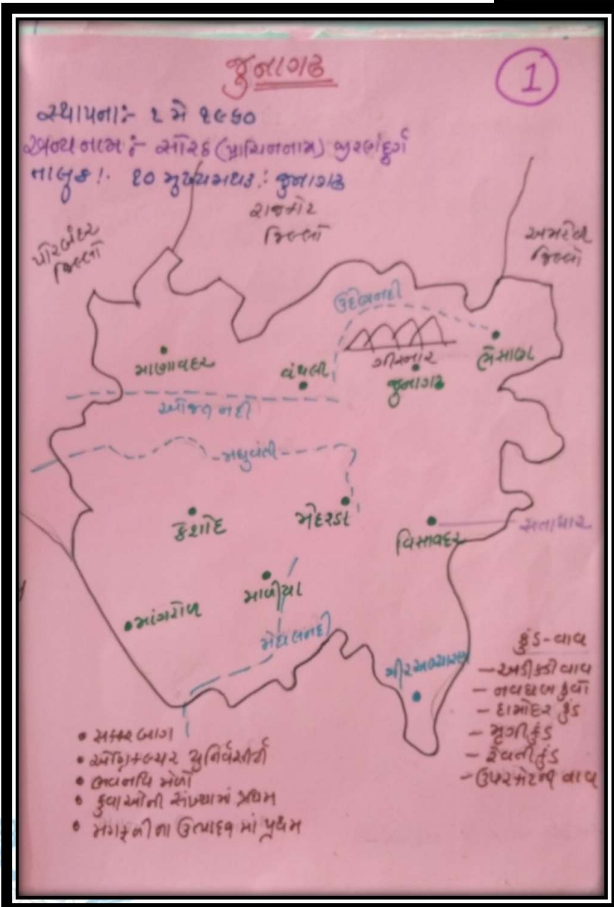 જુનાગઢ
1
સ્થાપના:- ૧ મે ૧૯૬૦
અન્યનામ:- સોરઠ (પ્રાચિનનામ)
તાલુકા:- ૧૦ મુખ્યમથક:- જુનાગઢ
પોરબંદર
જિલ્લો
રાજકોટ
જિલ્લો
અમરેલી
જિલ્લો
ઉબેણનદી
ગીરનાર
ભેંસાણ
માણાવદર
વંથલી
જુનાગઢ
ઓજતનદી
મધુવંતી
કેશોદ
મેંદરડા
વિસાવદર
સતાધાર
માળીયા
માંગરોળ
મેઘલનદી
ગીરઅભ્યારણ
કુંડ-વાવ
- અડીકડી વાવ
- નવઘણ કુવો
- દામોદર કુંડ
- મૃગીકુંડ
- રેવતીકુંડ
- ઉપરકોટની વાવ
• સક્કર બાગ
• એગ્રીકલ્ચર યુનિર્વસીટી
• ભવનાથ મેળો
• કુવાઓની સંખ્યામાં પ્રથમ
• મગફળીના ઉત્પાદન માં પ્રથમ